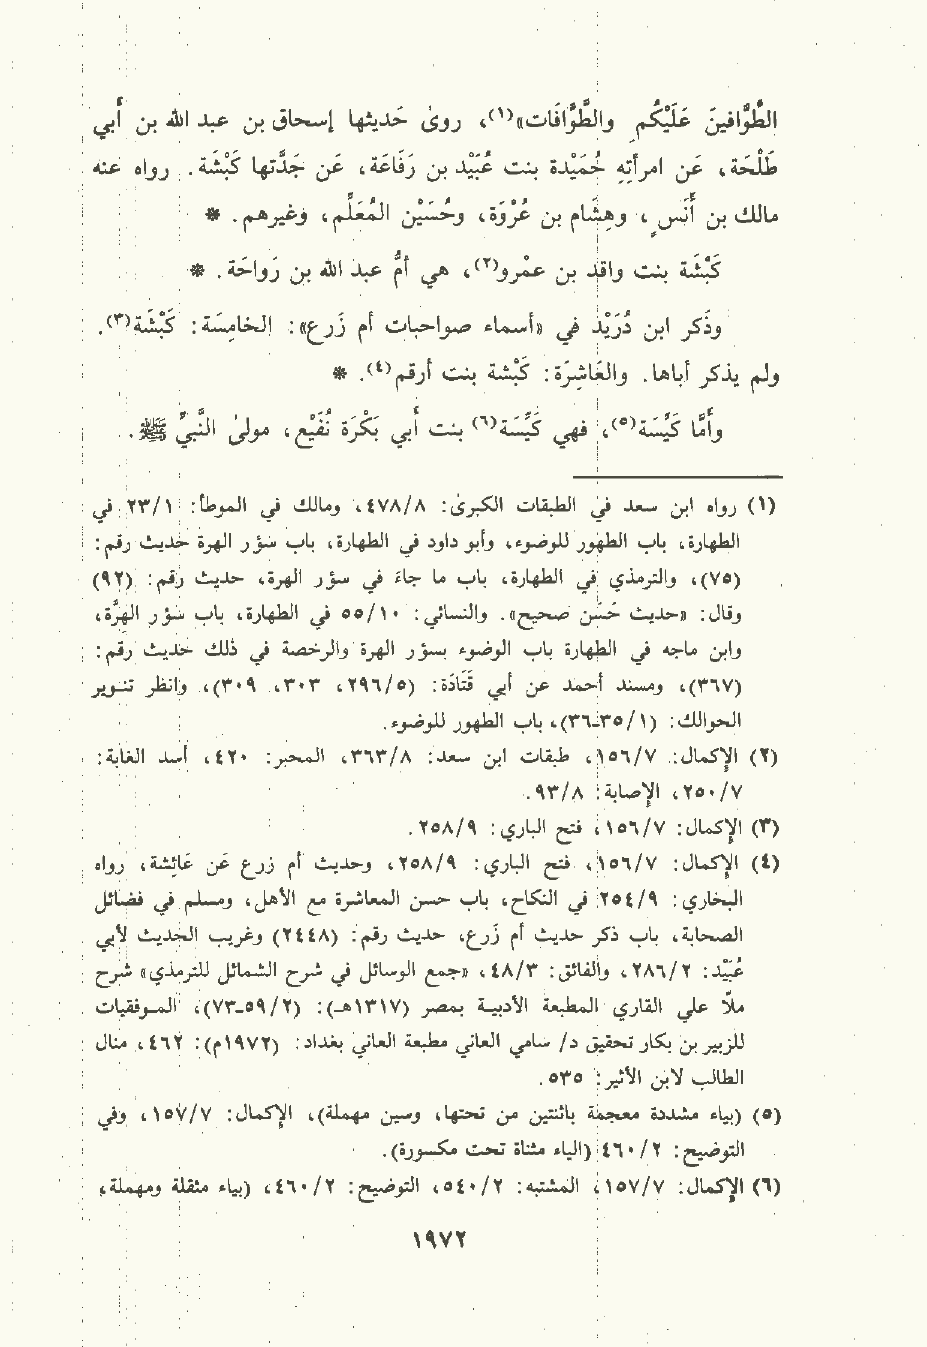 الطَّوَّافينَ عَلَيْكُم والطَّوَّافَات»(١)، روىٰ حَديثها إسحاق بن عبد الله بن أبي
طَلْحَة، عَن امرأتِهِ حُمَيْدة بنت عُبَيْد بن رَفَاعَة، عَن جَدَّتها كَبْشَة. رواه عنه
مالك بن أَنَس، وهِشَام بن عُرْوَة، وحُسَيْن المُعَلِّم، وغيرهم. *
كَبْشَة بنت واقد بن عمْرو(٢)، هي أمُّ عبد الله بن رَواحَة. *
وذَكر ابن دُرَيْد في «أسماء صواحبات أم زَرع»: الخامِسَة: كَبْشَة(٣).
ولم يذكر أباها. والعَاشِرَة: كَبْشة بنت أرقم(٤). *
وأمَّا كَيِّسَة(٥)، فهي كَيِّسَة(٦) بنت أبي بَكْرَة نُفَيْع، مولىٰ النَّبيِّ ﷺ.
(١) رواه ابن سعد في الطبقات الكبرىٰ: ٤٧٨/٨، ومالك في الموطأ: ٢٣/١ في
الطهارة، باب الطهور للوضوء، وأبو داود في الطهارة، باب سؤر الهرة حديث رقم:
(٧٥)، والترمذي في الطهارة، باب ما جاءَ في سؤر الهرة، حديث رقم: (٩٢)
وقال: «حديث حَسَن صحيح». والنسائي: ٥٥/١٠ في الطهارة، باب سؤر الهرَّة،
وابن ماجه في الطهارة باب الوضوء بسؤر الهرة والرخصة في ذلك حديث رقم:
(٣٦٧)، ومسند أحمد عن أبي قَتَادَة: (٢٩٦/٥، ٣٠٣، ٣٠٩)، وانظر تنوير
الحوالك: (٣٥/١-٣٦)، باب الطهور للوضوء.
(٢) الإكمال: ١٥٦/٧، طبقات ابن سعد: ٣٦٣/٨، المحبر: ٤٢٠، أسد الغابة:
٢٥٠/٧، الإصابة: ٩٣/٨.
(٣) الإكمال: ١٥٦/٧، فتح الباري: ٢٥٨/٩.
(٤) الإكمال: ١٥٦/٧، فتح الباري: ٢٥٨/٩، وحديث أم زرع عَن عَائِشة، رواه
البخاري: ٢٥٤/٩ في النكاح، باب حسن المعاشرة مع الأهل، ومسلم في فضائل
الصحابة، باب ذكر حديث أم زَرع، حديث رقم: (٢٤٤٨) وغريب الحديث لأبي
عُبَيْد: ٢٨٦/٢، والفائق: ٤٨/٣، «جمع الوسائل في شرح الشمائل للترمذي» شرح
ملاّ علي القاري المطبعة الأدبية بمصر (١٣١٧هـ): (٥٩/٢-٧٣)، الموفقيات
للزبير بن بكار تحقيق د/ سامي العاني مطبعة العاني بغداد: (١٩٧٢م): ٤٦٢، منال
الطالب لابن الأثير: ٥٣٥.
(٥) (بياء مشددة معجمة باثنتين من تحتها، وسين مهملة)، الإكمال: ١٥٧/٧، وفي
التوضيح: ٤٦٠/٢ (الياء مثناة تحت مكسورة).
(٦) الإكمال: ١٥٧/٧، المشتبه: ٥٤٠/٢، التوضيح: ٤٦٠/٢، (بياء مثقلة ومهملة،
١٩٧٢